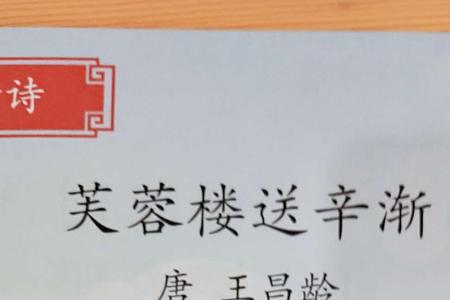 诗
芙蓉楼送辛渐
唐 王昌龄